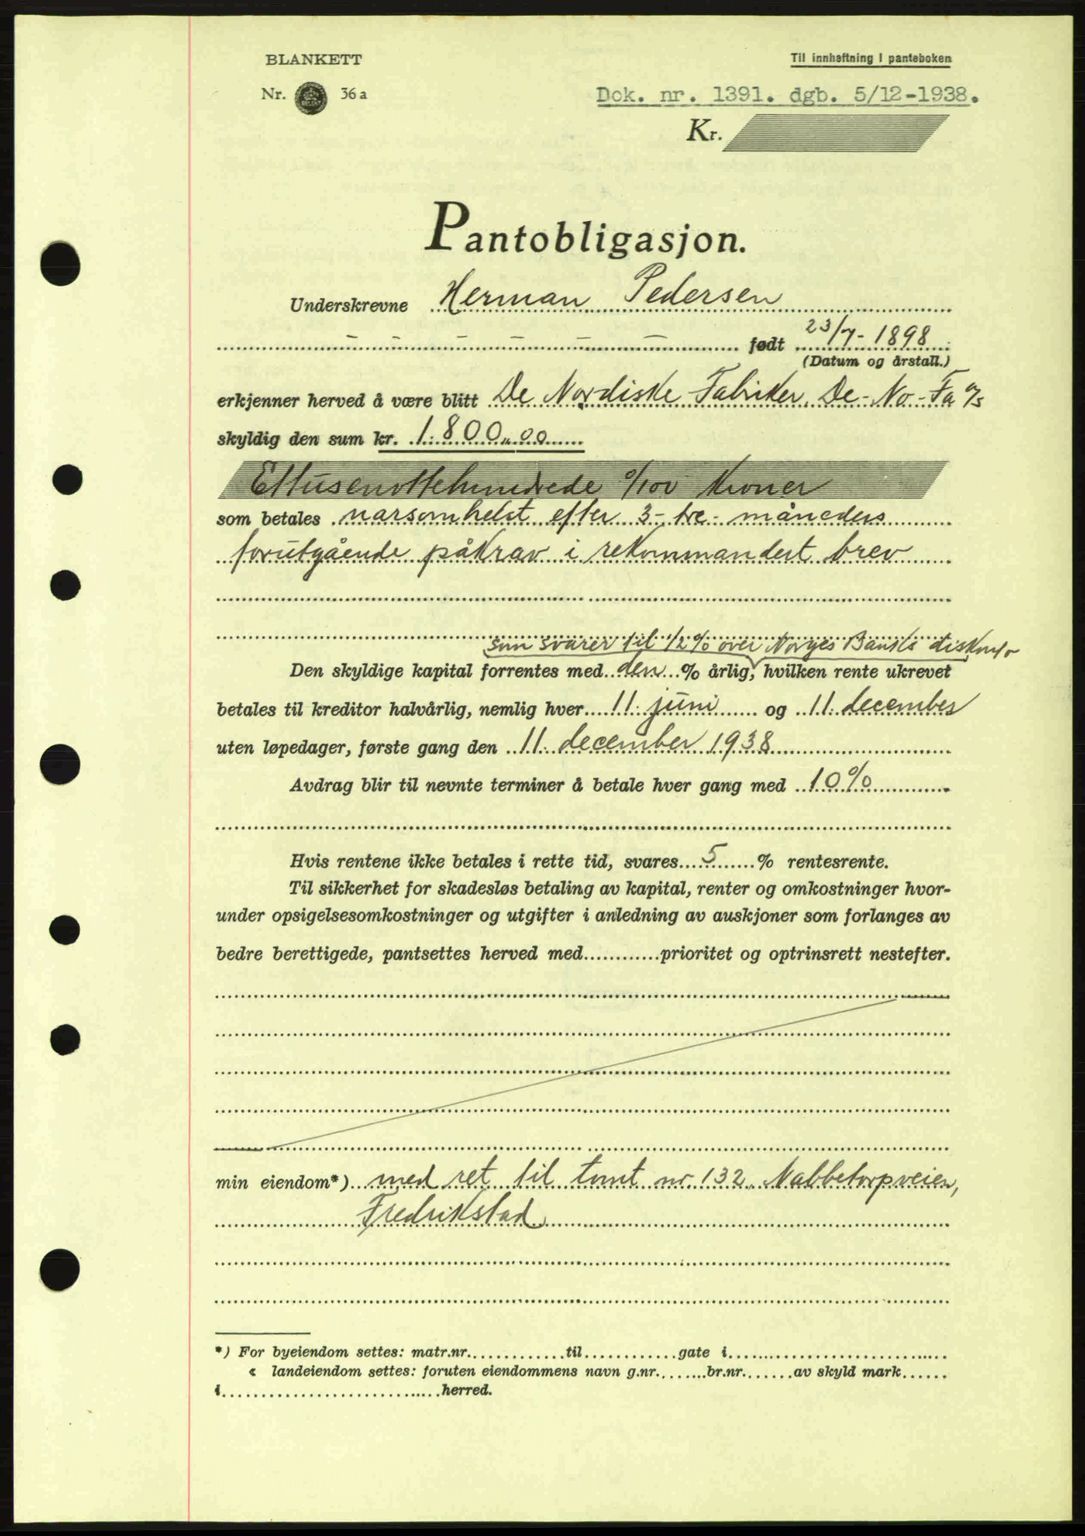 BLANKETT
Til innheftning i panteboken
Nr. 36 a
Dok. nr. 1391. dgb. 5/12-1938.
Kr.
Pantobligasjon.
Underskrevne Herman Pedersen
født 23/7-1898
(Datum og årstall.)
erkjenner herved å være blitt De Nordiske Fabriker, De-No-Fa a/s
skyldig den sum kr. 1.800,,00
Ettusenottehundrede 0/100 Kroner
som betales narsomhelst efter 3-tre-måneders
forutgående påkrav i rekommandert brev
som svarer til 1/2% over Norges Banks diskonto
Den skyldige kapital forrentes med den % årlig, hvilken rente ukrevet
betales til kreditor halvårlig, nemlig hver 11. juni og 11. december
uten løpedager, første gang den 11. december 1938
Avdrag blir til nevnte terminer å betale hver gang med 10%
Hvis rentene ikke betales i rette tid, svares 5 % rentesrente.
Til sikkerhet for skadesløs betaling av kapital, renter og omkostninger hvor-
under opsigelsesomkostninger og utgifter i anledning av auskjoner som forlanges av
bedre berettigede, pantsettes herved med............prioritet og optrinsrett nestefter.
min eiendom*) med ret til tomt nr. 132 Nabbetorpveien,
Fredrikstad
*) For byeiendom settes: matr.nr.............til............gate i............
« landeiendom settes: foruten eiendommens navn g.nr........br.nr.......av skyld mark......
i............herred.